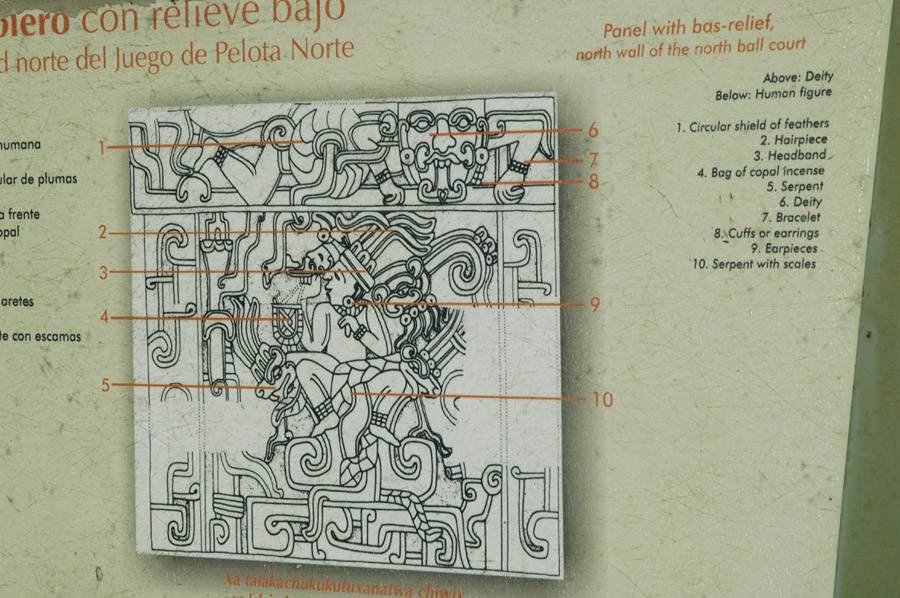 con relieve bajo
norte del Juego de Pelota Norte
Panel with bas-relief,
north wall of the north ball court
Above: Deity
Below: Human figure
1. Circular shield of feathers
2. Hairpiece
3. Headband
4. Bag of copal incense
5. Serpent
6. Deity
7. Bracelet
8. Cuffs or earrings
9. Earpieces
10. Serpent with scales
de plumas
frente
aretes
con escamas
1
2
3
4
5
6
7
8
9
10